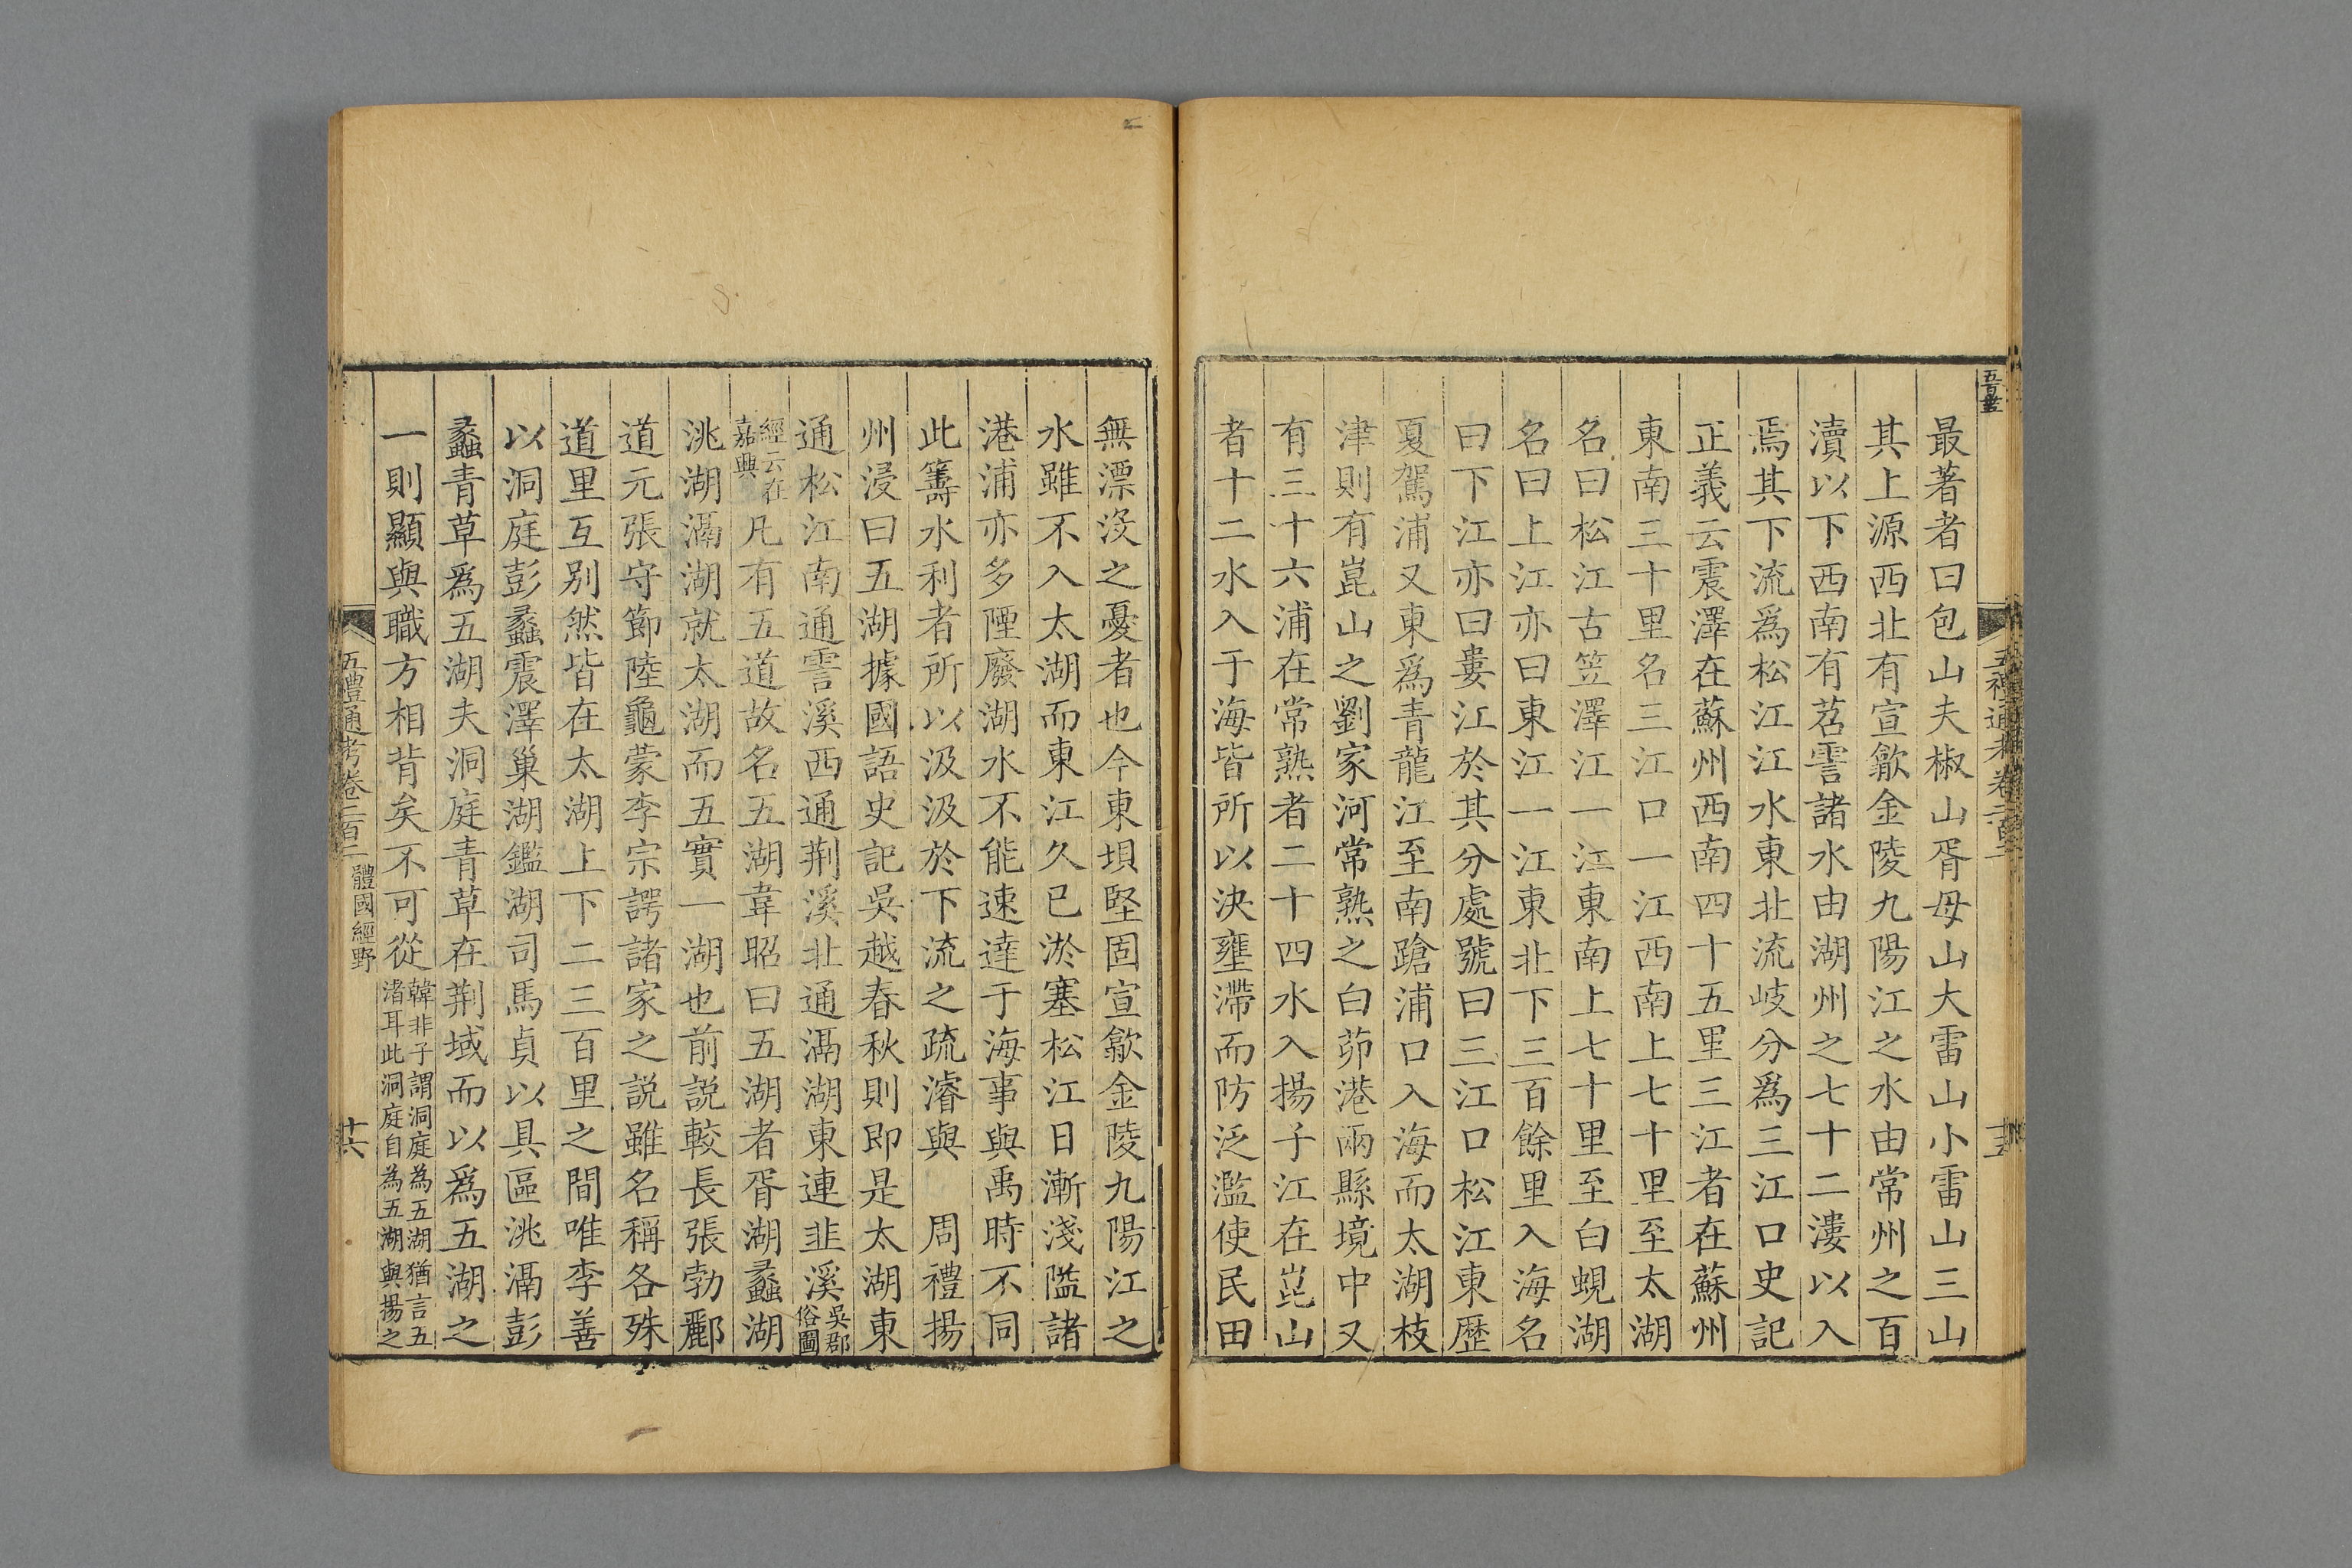 最著者曰包山夫椒山胥母山大雷山小雷山三山
其上源西北有宣歙金陵九陽江之水由常州之百
瀆以下西南有苕霅諸水由湖州之七十二漊以入
焉其下流爲松江江水東北流岐分爲三江口史記
正義云震澤在蘇州西南四十五里三江者在蘇州
東南三十里名三江口一江西南上七十里至太湖
名曰松江古笠澤江一江東南上七十里至白蜆湖
名曰上江亦曰東江一江東北下三百餘里入海名
曰下江亦曰婁江於其分處號曰三江口松江東歴
夏駕浦又東爲青龍江至南蹌浦口入海而太湖枝
津則有崑山之劉家河常熟之白茆港兩縣境中又
有三十六浦在常熟者二十四水入揚子江在崑山
者十二水入于海皆所以決壅滯而防泛濫使民田
無漂没之憂者也今東垻堅固宣歙金陵九陽江之
水雖不入太湖而東江久已淤塞松江日漸淺隘諸
港浦亦多堙廢湖水不能速達于海事與禹時不同
此籌水利者所以汲汲於下流之疏濬與　周禮揚
州浸曰五湖據國語史記吳越春秋則即是太湖東
通松江南通霅溪西通荆溪北通滆湖東連韭溪吳郡俗圖
經云在嘉興凡有五道故名五湖韋昭曰五湖者胥湖蠡湖
洮湖滆湖就太湖而五實一湖也前説較長張勃酈
道元張守節陸龜蒙李宗諤諸家之説雖名稱各殊
道里互别然皆在太湖上下二三百里之間唯李善
以洞庭彭蠡震澤巢湖鑑湖司馬貞以具區洮滆彭
蠡青草爲五湖夫洞庭青草在荆域而以爲五湖之
一則顯與職方相背矣不可從韓非子謂洞庭為五湖猶言五渚耳此洞庭自為五湖與揚之
五禮通考卷二百二　體國經野　十六